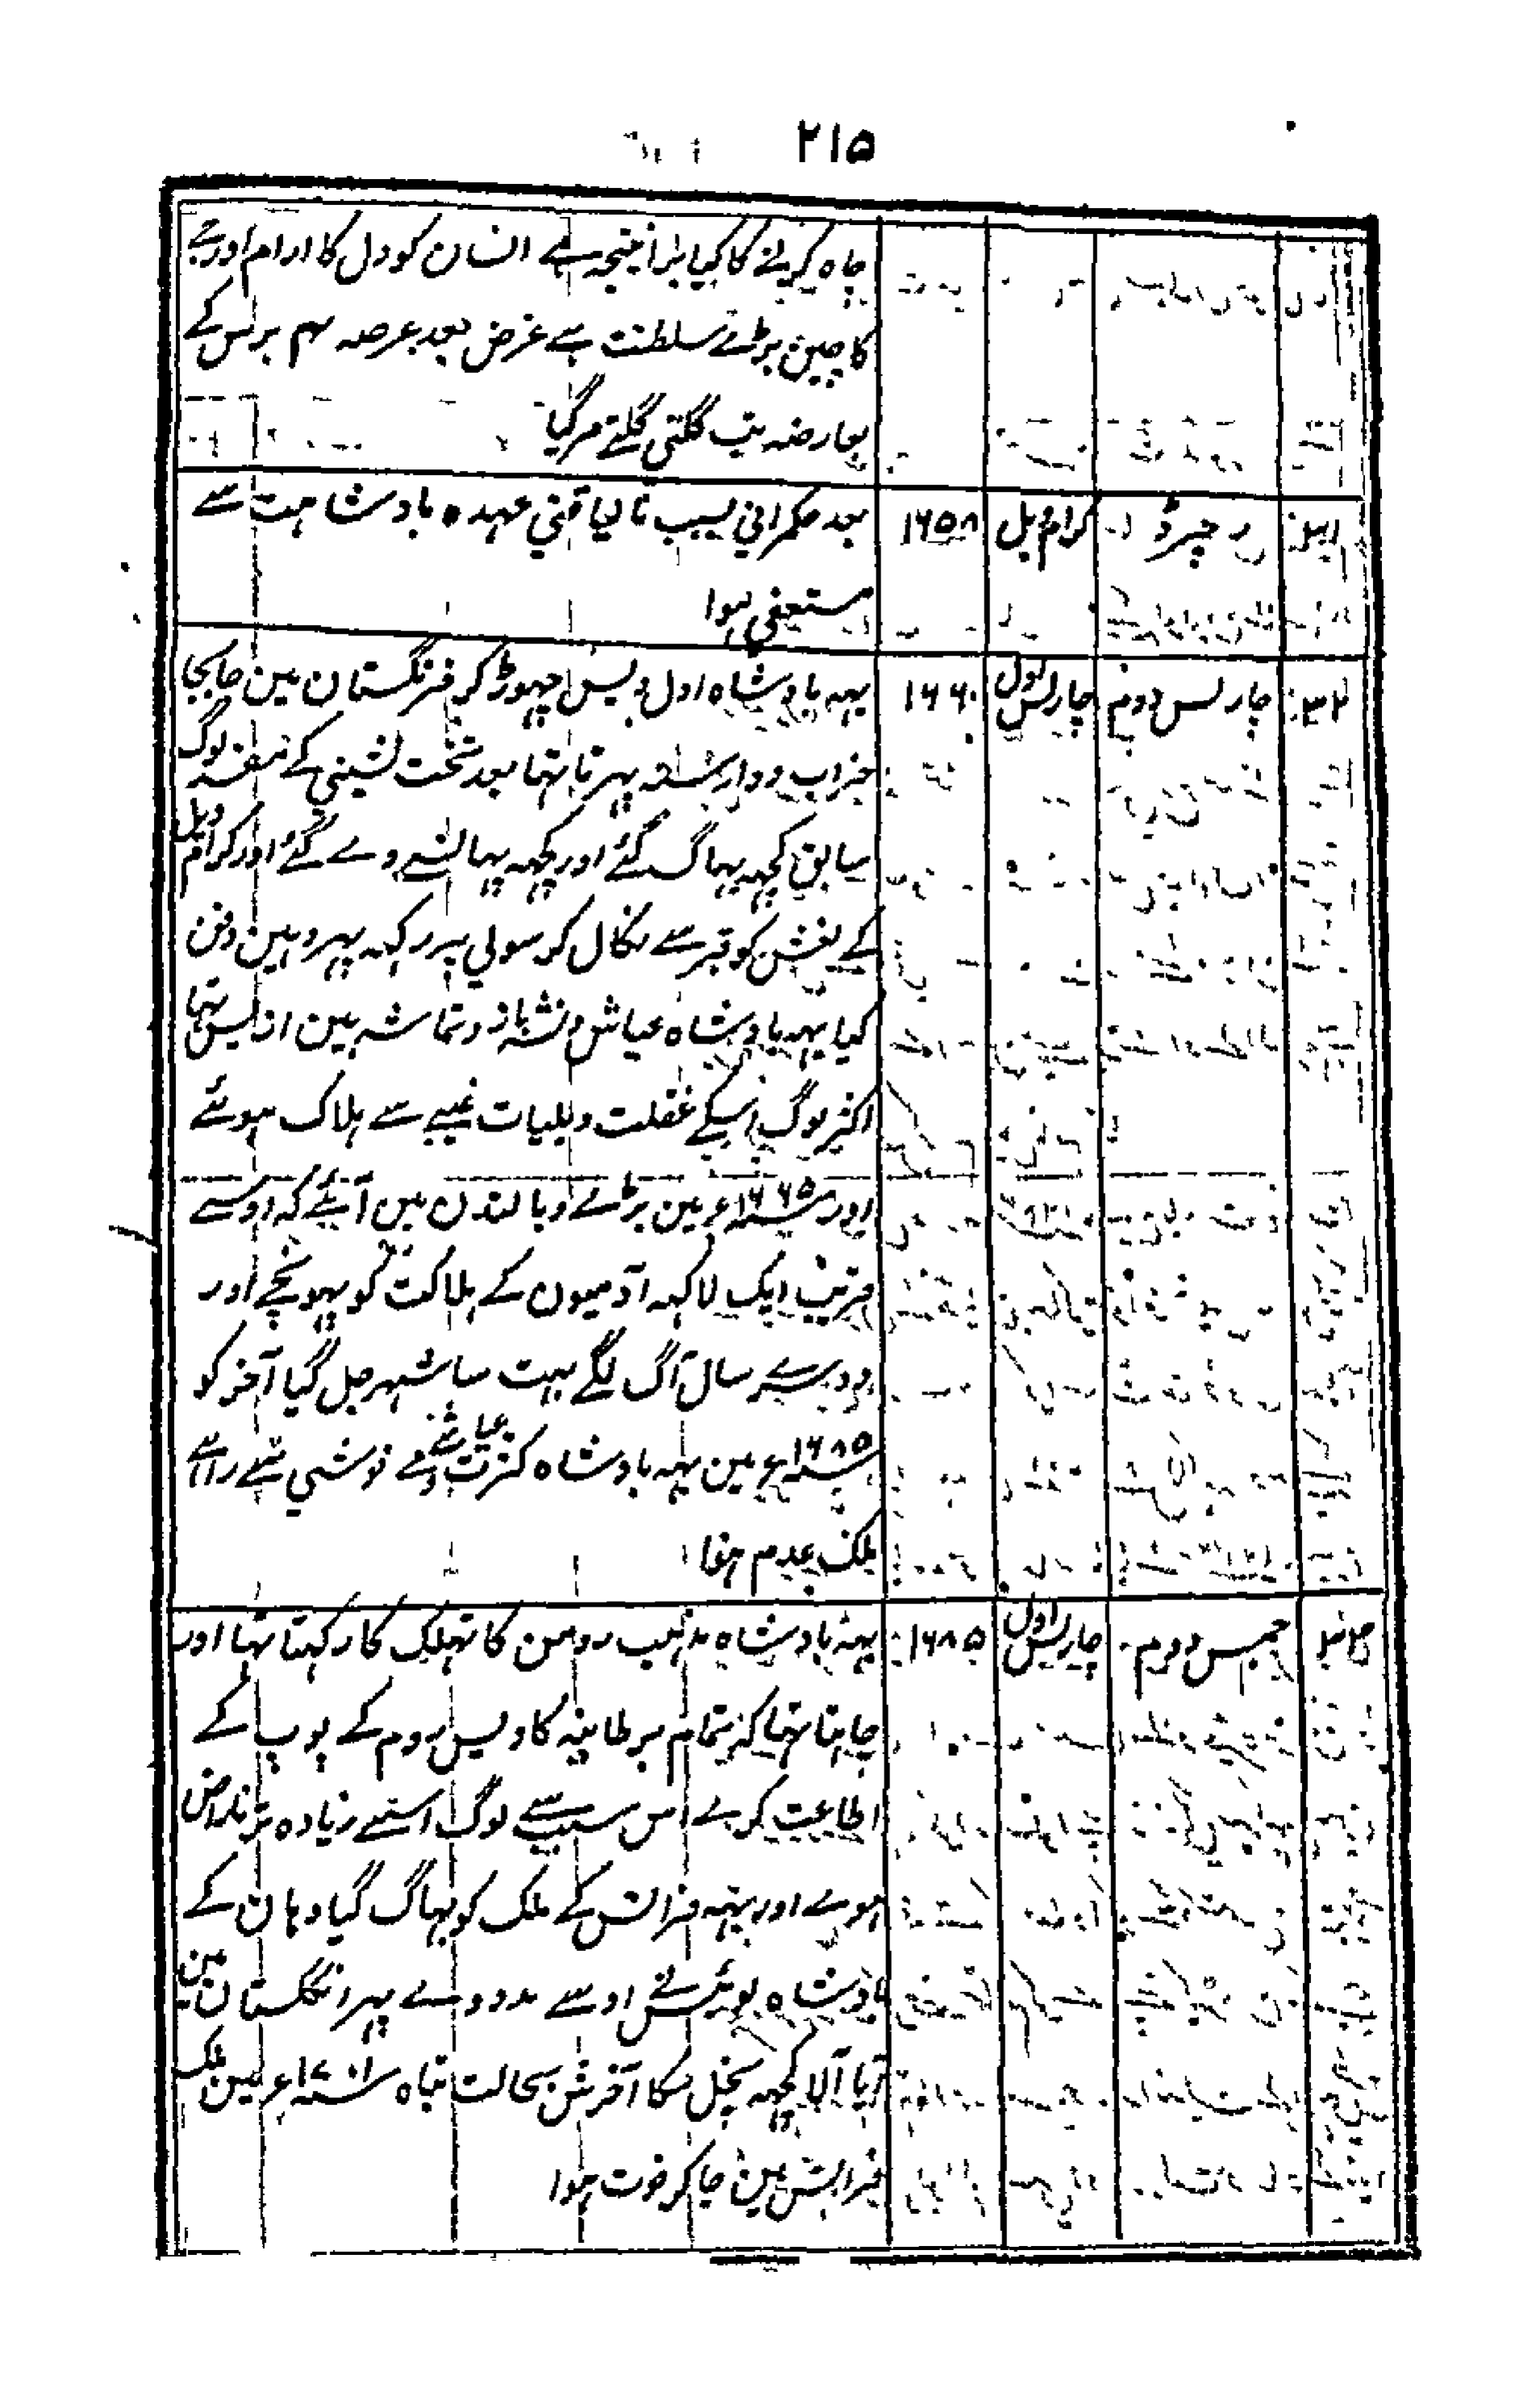 ۲۱۵
چاہ کرنے کا کیا برا نتیجہ ہے انسان کو دل کا ارام اور جی
کا چین بڑے سلطنت ہے غرض بعد عرصہ ۴ برس کے
بعارضہ تپ گلتی گلتے مر گیا
رچرڈ کرام ویل ۱۶۵۸ بعد حکمرانی بسبب نالیاقتی عہدہ بادشاہت سے
مستعفی ہوا
چارلس دوم چارلس اول ۱۶۶۰ یہہ بادشاہ اول دیس چہوڑ کر فرنگستان مین جابجا
خراب و وارستہ پہرتا تہا بعد تخت نشینی کے مفسد لوگ
سابق کچہہ بہاگ گئے اور کچہہ پہانسے دے گئے اور کرام ویل
کے نعش کو قبر سے نکال کو سولی پر رکہہ پہر وہین دفن
کیا یہہ بادشاہ عیاش و نشہ باز و تماشہ بین از بس تہا
اکثر لوگ اسکے غفلت و بلیات غیبے سے ہلاک ہوئے
اور سنہ ۱۶۶۵ء مین بڑے وبا لندن مین آئے کہ اوسے
قریب ایک لاکہہ آدمیون کے ہلاکت کو پہونچے اور
دوسرے سال آگ لگے بہت سا شہر جل گیا آخر کو
سنہ ۱۶۸۵ء مین یہہ بادشاہ کثرت عیاشے و مے نوشی سے راہے
ملک عدم ہوا
جیمس دوم چارلس اول ۱۶۸۵ یہہ بادشاہ مذہب رومن کاتہلک کا رکہتا تہا اور
چاہتا تہا کہ تمام برطانیہ کا دیس روم کے پوپ کے
اطاعت کرے اس سبب سے لوگ اسسے زیادہ تر ناراض
ہوے اور یہہ فرانس کے ملک کو بہاگ گیا وہان کے
بادشاہ لوئیس نے اوسے مدد دے پہر انگلستان مین
آیا الا کچہہ نچل سکا آخرش بحالت تباہ سنہ ۱۷۰۱ء مین ملک
فرانس مین جا کر فوت ہوا